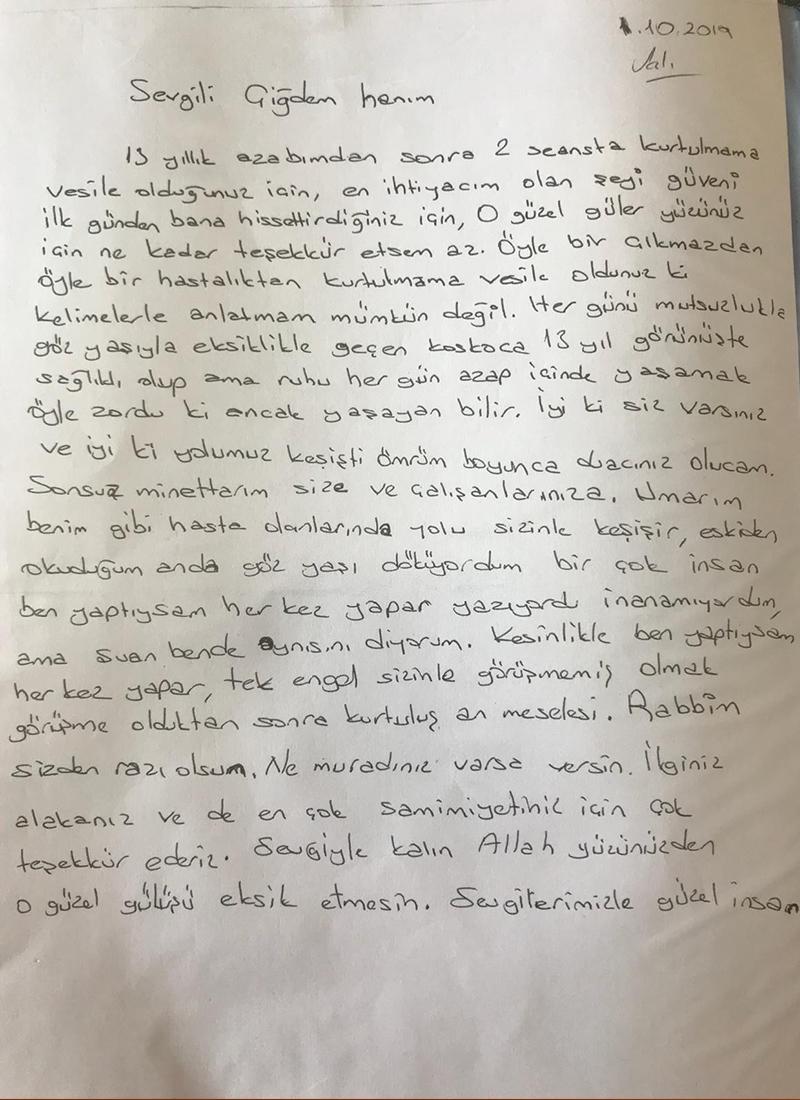 1.10.2019
Salı
Sevgili Çiğdem hanım
13 yıllık azabımdan sonra 2 seansta kurtulmama
vesile olduğunuz için, en ihtiyacım olan şeyi güveni
ilk günden bana hissettirdiğiniz için, O güzel güler yüzünüz
için ne kadar teşekkür etsem az. Öyle bir çıkmazdan
öyle bir hastalıktan kurtulmama vesile oldunuz ki
kelimelerle anlatmam mümkün değil. Her günü mutsuzlukla
göz yaşıyla eksiklikle geçen koskoca 13 yıl görünüşte
sağlıklı olup ama ruhu her gün azap içinde yaşamak
öyle zordu ki ancak yaşayan bilir. İyi ki siz varsınız
ve iyi ki yolumuz keşişti ömrüm boyunca duacınız olucam.
Sonsuz minettarım size ve çalışanlarınıza. Umarım
benim gibi hasta olanlarında yolu sizinle keşişir, eskiden
okuduğum anda göz yaşı döküyordum bir çok insan
ben yaptıysam her kez yapar yazıyordı inanamıyordum,
ama şuan bende aynısını diyorum. Kesinlikle ben yaptıysam
her kez yapar, tek engel sizinle görüşmemiş olmak
görüşme olduktan sonra kurtuluş an meselesi. Rabbim
sizden razı olsum. Ne muradınız varsa versin. İlginiz
alakanız ve de en çok samimiyetiniz için çok
teşekkür ederiz. Sevgiyle kalın Allah yüzünüzden
o güzel gülüşü eksik etmesin. Sevgilerimizle güzel insan